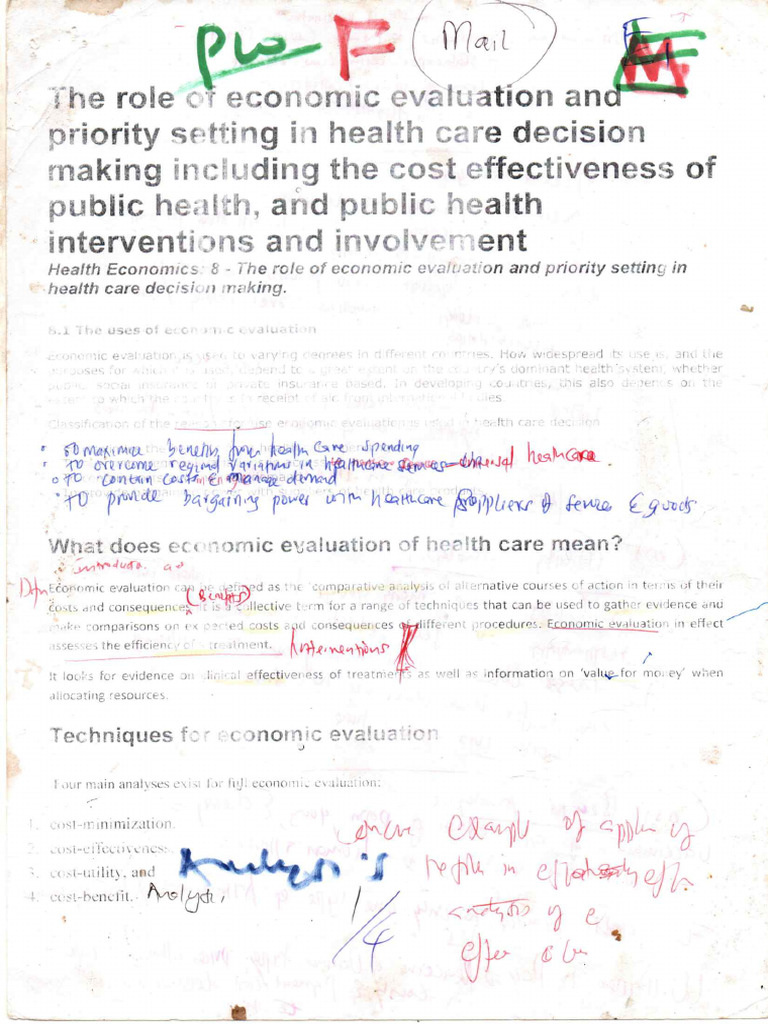 F
Mail
The role of economic evaluation and
priority setting in health care decision
making including the cost effectiveness of
public health, and public health
interventions and involvement
Health Economics: 8 - The role of economic evaluation and priority setting in
health care decision making.
8.1 The uses of economic evaluation
Economic evaluation is used to varying degrees in different countries. How widespread its use is, and the
purposes for which it is used, depend to a great extent on the country's dominant health system, whether
public, social insurance or private insurance based. In developing countries, this also depends on the
extent to which the country is in receipt of aid from international bodies.
Classification of the reason for use economic evaluation is used in health care decision
• To maximize benefits from health care spending
• To overcome regional variations in healthcare services universal healthcare
• To contain costs & manage demand
• To provide bargaining power with healthcare suppliers of service & goods
What does economic evaluation of health care mean?
Economic evaluation can be defined as the 'comparative analysis of alternative courses of action in terms of their
(Benefits)
costs and consequences. It is a collective term for a range of techniques that can be used to gather evidence and
make comparisons on expected costs and consequences of different procedures. Economic evaluation in effect
assesses the efficiency of a treatment. Interventions
It looks for evidence on clinical effectiveness of treatments as well as information on 'value for money' when
allocating resources.
Techniques for economic evaluation
Four main analyses exist for full economic evaluation:
1. cost-minimization.
2. cost-effectiveness.
3. cost-utility, and Analysis
4. cost-benefit. Analysis
example of
in
of
1/4